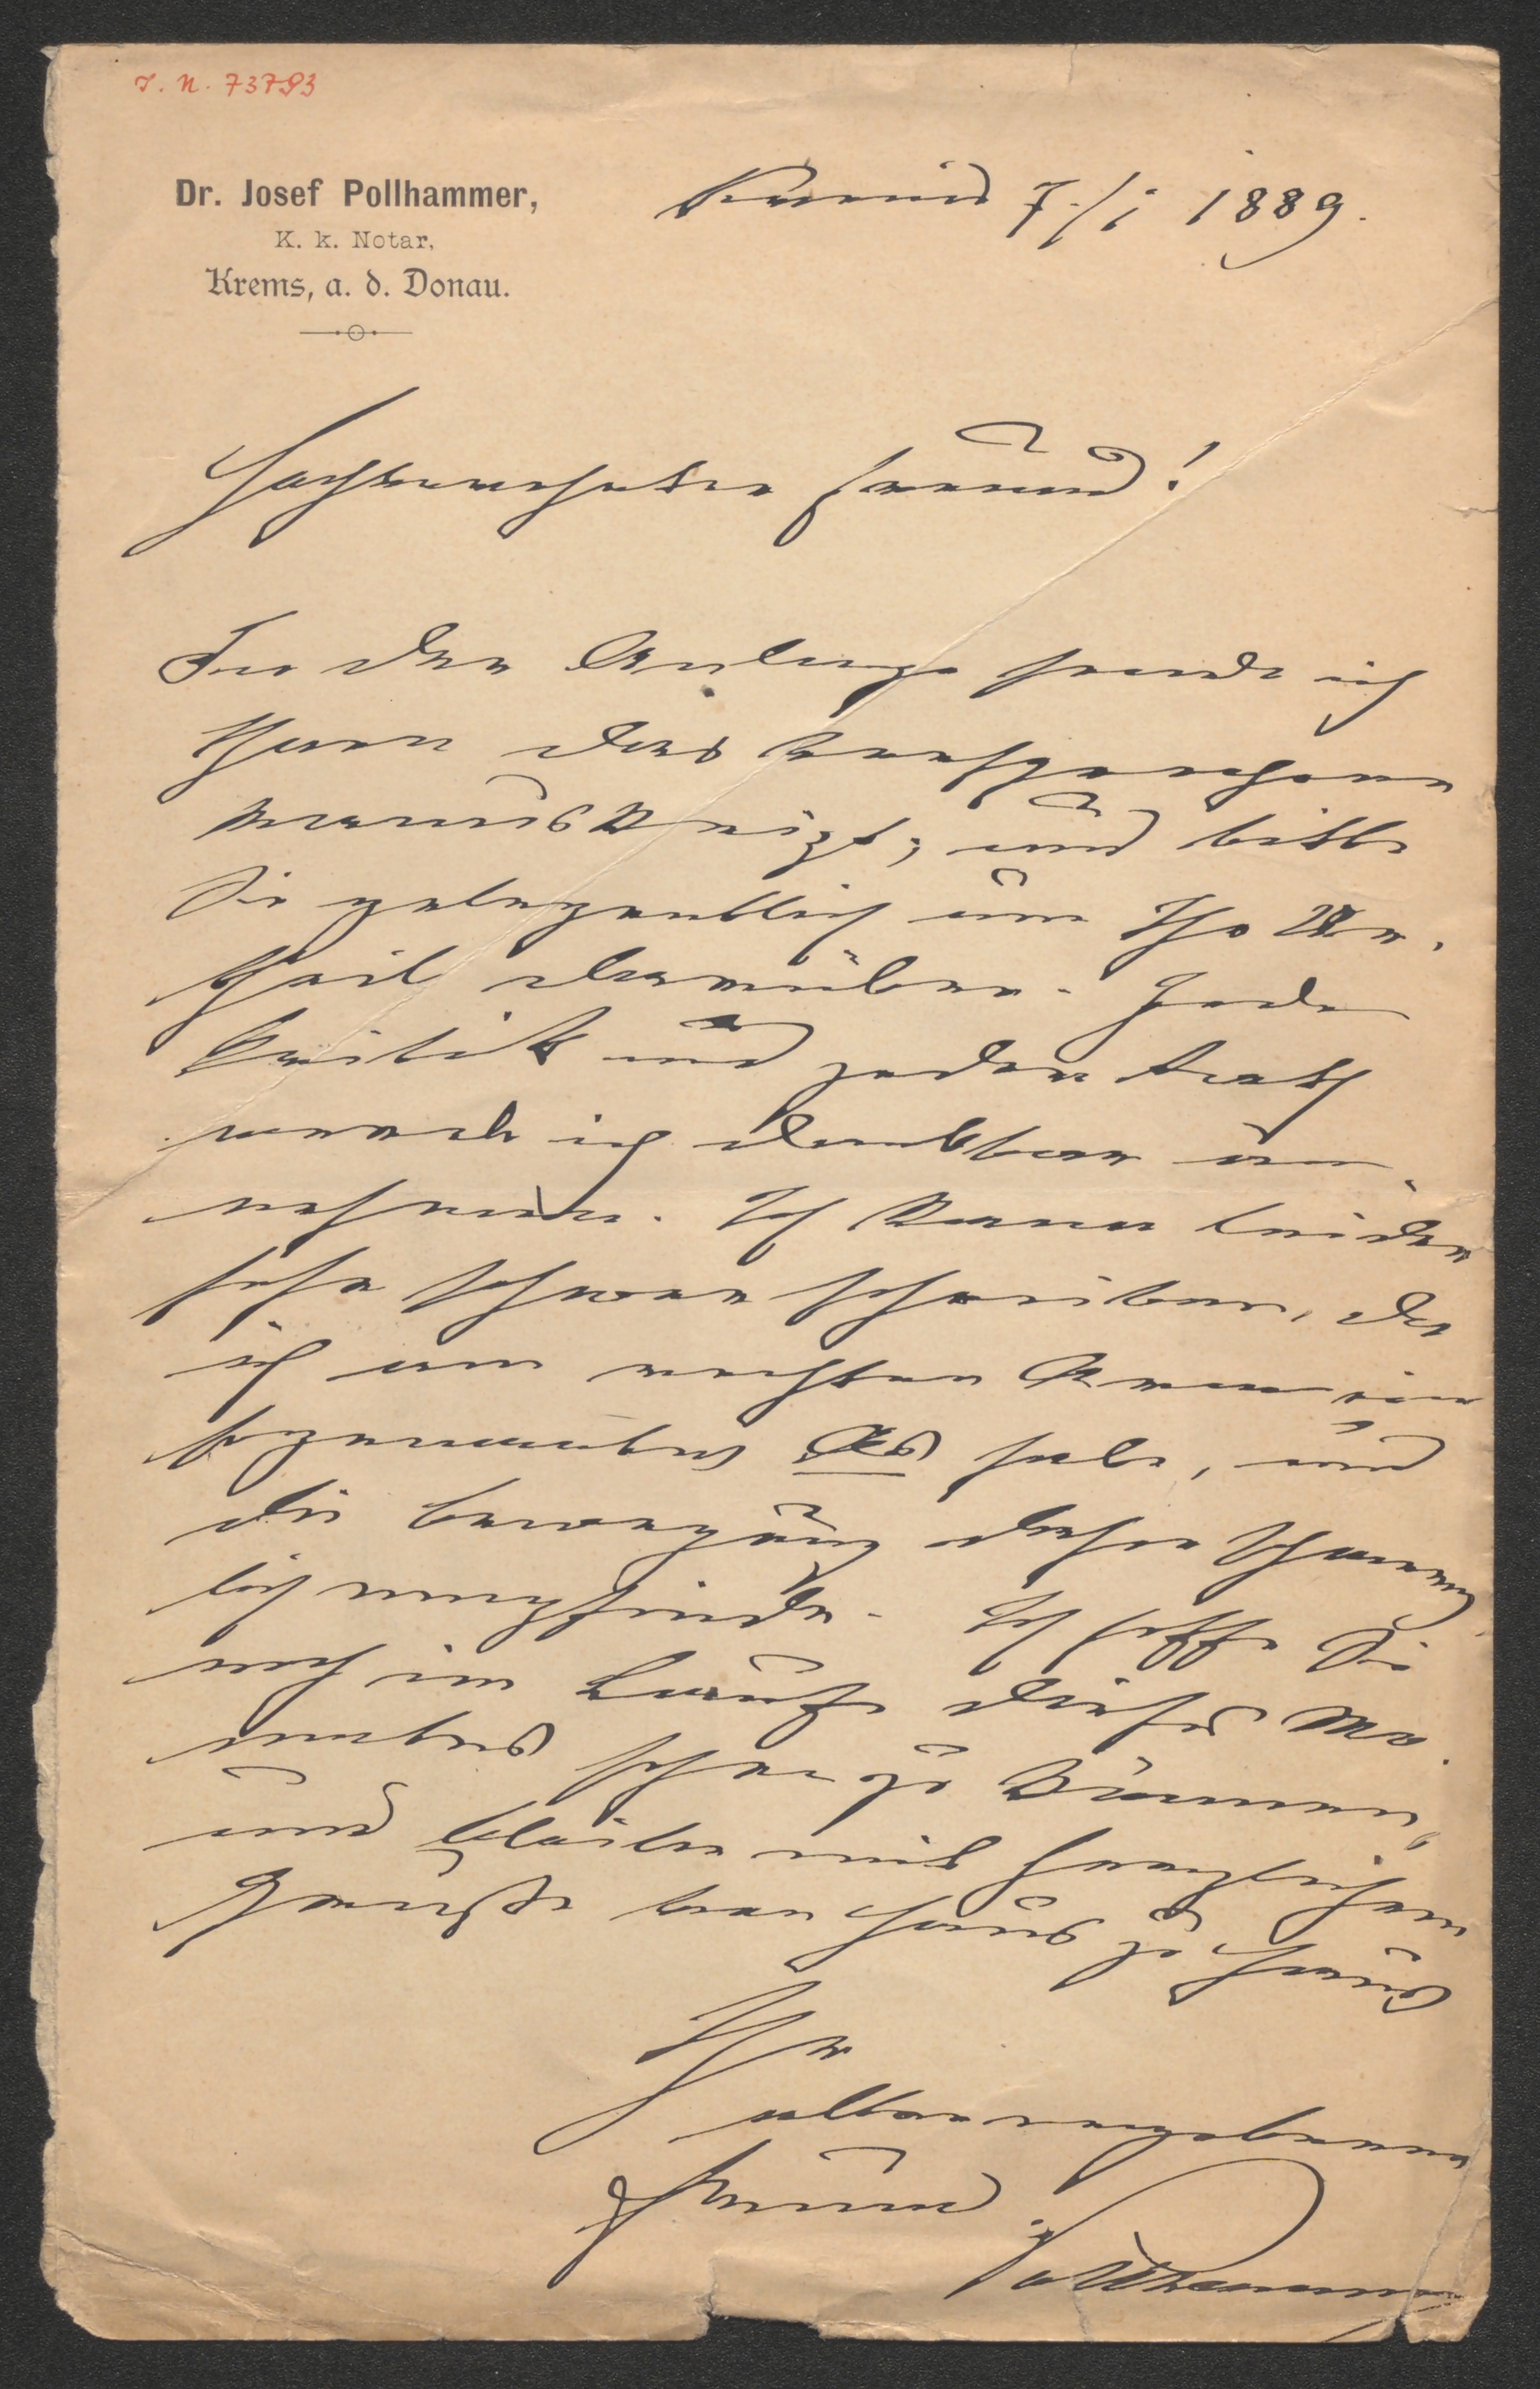 I. N. 73793
Dr. Josef Pollhammer,
K. k. Notar,
Krems, a. d. Donau.
Krems 7./1 1889.
Hochverehrter Freund!
In der Anlage sende ich
Ihnen das versprochene
Manuskript, und bitte
Sie gelegentlich um Ihr Ur-
theil darüber. Jede
Kritik und jeden Rath
werde ich dankbar an-
nehmen. Ich kann leider
sehr schwer schreiben, da
ich am rechten Arm ein
sogenanntes habe, und
die Bewegung daher schmerz-
lich empfinde. Ich hoffe Sie
noch im Laufe dieses Mo-
nates sehen zu können,
und bleibe mit herzlichem
Gruße von Haus zu Haus
Ihr
altergebener
Freund
Pollhammer